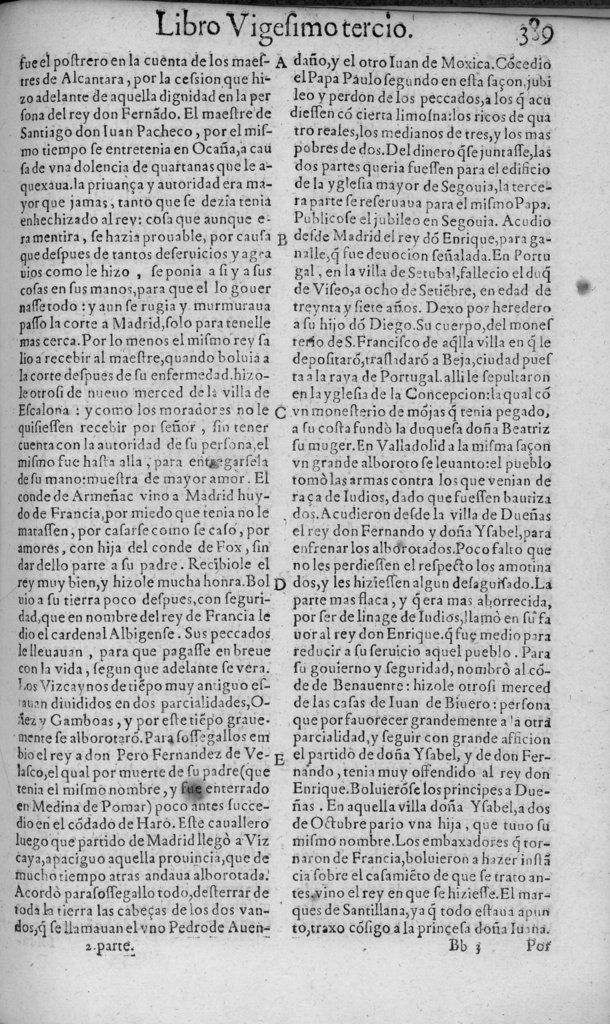 Libro Vigesimo tercio. 389
fue el postrero en la cuenta de los maes-
tres de Alcantara, por la cession que hi-
zo adelante de aquella dignidad en la per
sona del rey don Fernãdo. El maestre de
Santiago don Iuan Pacheco, por el mis-
mo tiempo se entretenia en Ocaña, a cau
sa de vna dolencia de quartanas que le a-
quexaua. la priuança y autoridad era ma-
yor que jamas, tanto que se dezia tenia
enhechizado al rey: cosa que aunque e-
ra mentira, se hazia prouable, por causa
que despues de tantos deseruicios y agra
uios como le hizo, se ponia a si y a sus
cosas en sus manos, para que el lo gouer
nasse todo: y aun se rugia y murmuraua
passo la corte a Madrid, solo para tenelle
mas cerca. Por lo menos el mismo rey sa
lio a recebir al maestre, quando boluia a
la corte despues de su enfermedad. hizo-
le otrosi de nueuo merced de la villa de
Escalona: y como los moradores no le
quisiessen recebir por señor, sin tener
cuenta con la autoridad de su persona, el
mismo fue hasta alla, para entregarsela
de su mano: muestra de mayor amor. El
conde de Armeñac vino a Madrid huy-
do de Francia, por miedo que tenia no le
matassen, por casarse como se caso, por
amores, con hija del conde de Fox, sin
dar dello parte a su padre. Recibiole el
rey muy bien, y hizole mucha honra. Bol
uio a su tierra poco despues, con seguri-
dad, que en nombre del rey de Francia le
dio el cardenal Albigense. Sus peccados
le lleuauan, para que pagasse en breue
con la vida, segun que adelante se vera.
Los Vizcaynos de tiẽpo muy antiguo es-
tauan diuididos en dos parcialidades, O-
ñez y Gamboas, y por este tiẽpo graue-
mente se alborotarõ. Para sossegallos em
bio el rey a don Pero Fernandez de Ve-
lasco, el qual por muerte de su padre (que
tenia el mismo nombre, y fue enterrado
en Medina de Pomar) poco antes succe-
dio en el cõdado de Haro. Este cauallero
luego que partido de Madrid llegò a Viz
caya, apaciguo aquella prouincia, que de
mucho tiempo atras andaua alborotada.
Acordò para sossegallo todo, desterrar de
toda la tierra las cabeças de los dos van-
dos, q̃ se llamauan el vno Pedro de Auen-
2. parte.
A
B
C
D
E
daño, y el otro Iuan de Moxica. Cõcedio
el Papa Paulo segundo en esta saçon, jubi
leo y perdon de los peccados, a los q̃ acu
diessen cõ cierta limosna: los ricos de qua
tro reales, los medianos de tres, y los mas
pobres de dos. Del dinero q̃ se juntasse, las
dos partes queria fuessen para el edificio
de la yglesia mayor de Segouia, la terce-
ra parte se reseruaua para el mismo Papa.
Publicose el jubileo en Segouia. Acudio
desde Madrid el rey dõ Enrique, para ga-
nalle, q̃ fue deuocion señalada. En Portu
gal, en la villa de Setubal, fallecio el duq̃
de Viseo, a ocho de Setiẽbre, en edad de
treynta y siete años. Dexo por heredero
a su hijo dõ Diego. Su cuerpo, del mones
terio de S. Francisco de aq̃lla villa en q̃ le
depositarõ, trasladarõ a Beja, ciudad pues
ta à la raya de Portugal. alli le sepultaron
en la yglesia de la Concepcion: la qual cõ
vn monesterio de mõjas q̃ tenia pegado,
a su costa fundò la duquesa doña Beatriz
su muger. En Valladolid a la misma saçon
vn grande alboroto se leuanto: el pueblo
tomò las armas contra los que venian de
raça de Iudios, dado que fuessen bautiza
dos. Acudieron desde la villa de Dueñas
el rey don Fernando y doña Ysabel, para
enfrenar los alborotados. Poco falto que
no les perdiessen el respecto los amotina
dos, y les hiziessen algun desaguisado. La
parte mas flaca, y q̃ era mas aborrecida,
por ser de linage de Iudios, llamò en su fa
uor al rey don Enrique. q̃ fuę medio para
reducir a su seruicio aquel pueblo. Para
su gouierno y seguridad, nombrò al cõ-
de de Benauente: hizole otrosi merced
de las casas de Iuan de Biuero: persona
que por fauorecer grandemente a la otra
parcialidad, y seguir con grande afficion
el partido de doña Ysabel, y de don Fer-
nando, tenia muy offendido al rey don
Enrique. Boluierõse los principes a Due-
ñas. En aquella villa doña Ysabel, a dos
de Octubre pario vna hija, que tuuo su
mismo nombre. Los embaxadores q̃ tor-
naron de Francia, boluieron a hazer instã
cia sobre el casamiẽto de que se trato an-
tes. vino el rey en que se hiziesse. El mar-
ques de Santillana, ya q̃ todo estaua apun
to, traxo cõsigo a la princesa doña Iuana.
Bb 3 Por